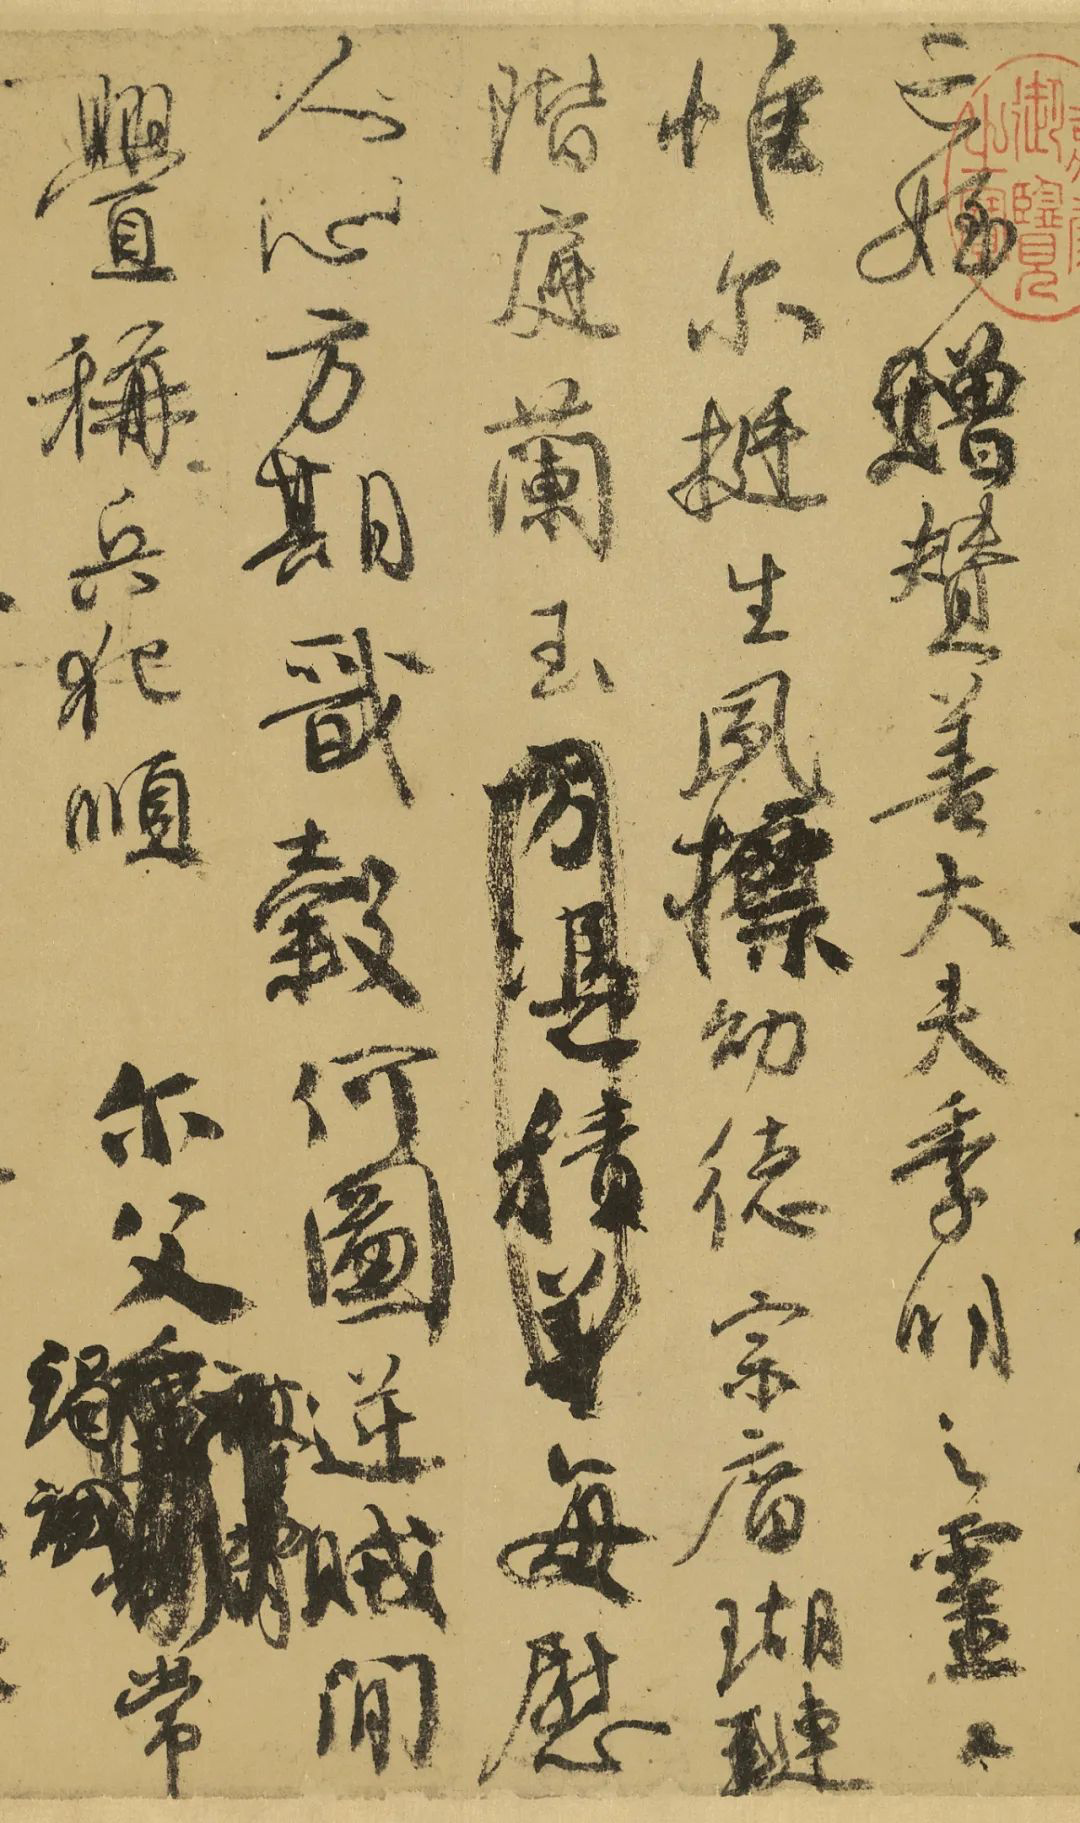 亡姪贈贊善大夫季明之靈曰
惟尔挺生夙標幼德宗廟瑚璉
階庭蘭玉方憑積善每慰
人心方期戩穀何圖逆賊閒
舋稱兵犯順尔父竭誠常
御覽